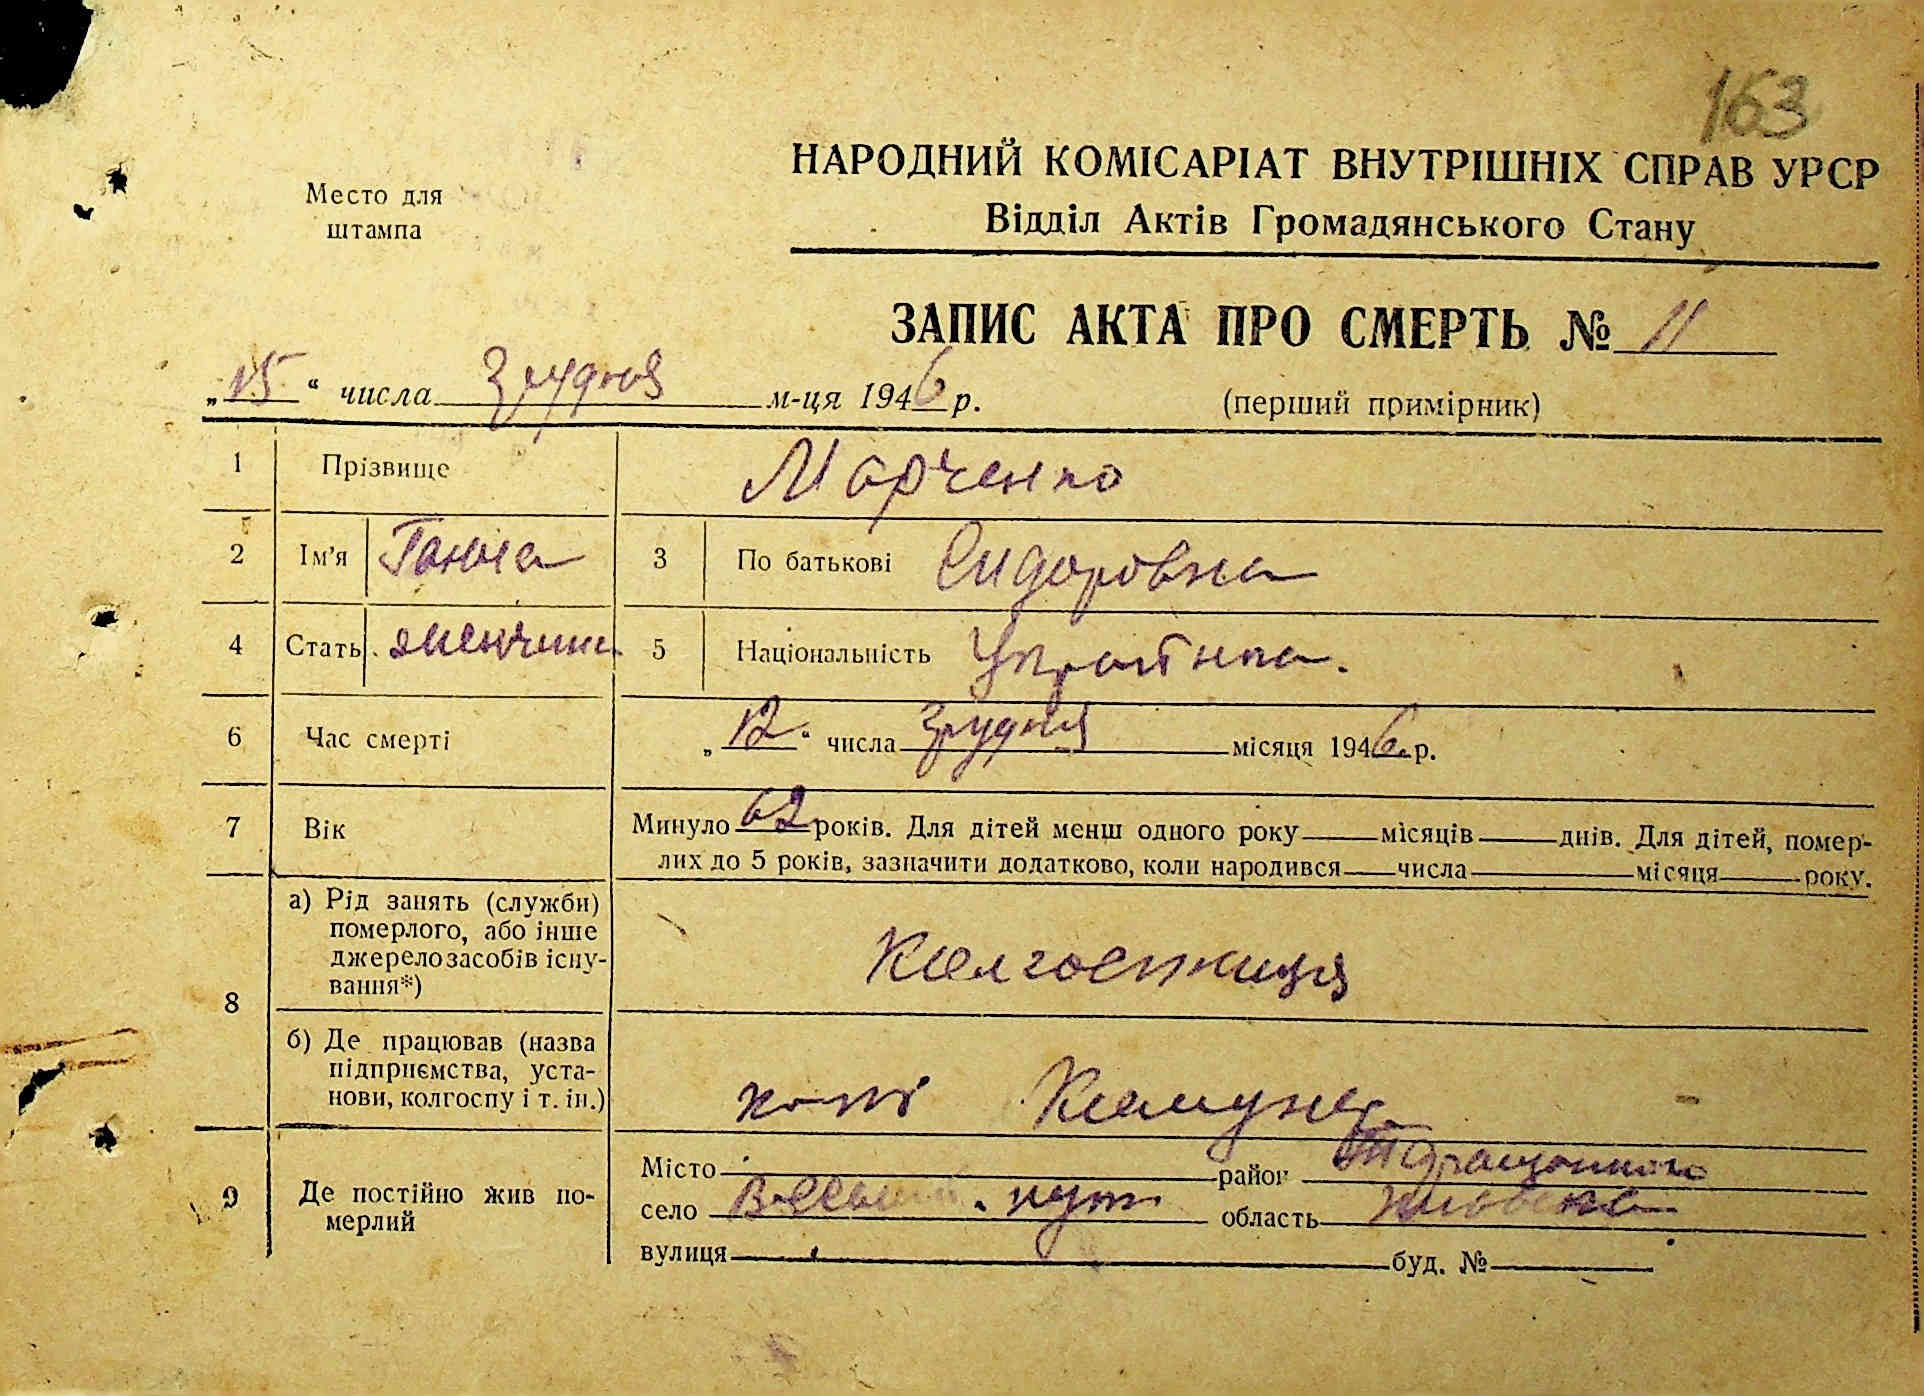 163
НАРОДНИЙ КОМІСАРІАТ ВНУТРІШНІХ СПРАВ УРСР
Место для штампа
Відділ Актів Громадянського Стану
ЗАПИС АКТА ПРО СМЕРТЬ № 11
„15“ числа Згрудня м-ця 1946 р.
(перший примірник)
1 Прізвище Марченко
2 Ім'я Ганна 3 По батькові Сидоровна
4 Стать женчина 5 Національність Украінка.
6 Час смерті „12“ числа Згрудня місяця 1946 р.
7 Вік Минуло 62 років. Для дітей менш одного року місяців днів. Для дітей, помер-
лих до 5 років, зазначити додатково, коли народився числа місяця року.
8 а) Рід занять (служби)
померлого, або інше
джерело засобів існу-
вання*)
Колгоспниця
б) Де працював (назва
підприємства, уста-
нови, колгоспу і т. ін.)
Комуна
9 Де постійно жив по-
мерлий
Місто район Таращанського
село кут область Київська
вулиця буд. №